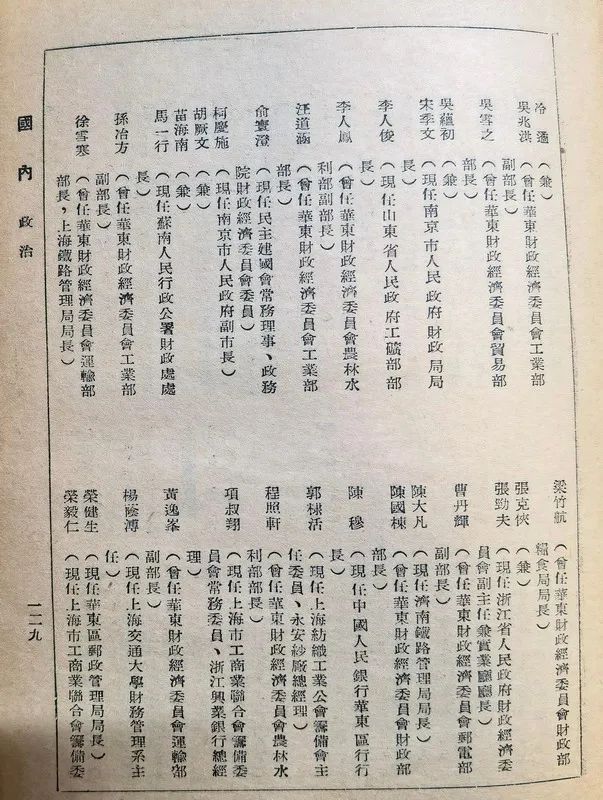 冷遹 （兼）
吳兆洪 （曾任華東財政經濟委員會工業部
副部長）
吳雪之 （曾任華東財政經濟委員會貿易部
部長）
吳蘊初 （兼）
宋季文 （現任南京市人民政府財政局局
長）
李人俊 （現任山東省人民政府工礦部部
長）
李人鳳 （曾任華東財政經濟委員會農林水
利部副部長）
汪道涵 （曾任華東財政經濟委員會工業部
部長）
俞寰澄 （現任民主建國會常務理事、政務
院財政經濟委員會委員）
柯慶施 （現任南京市人民政府副市長）
胡厥文 （兼）
苗海南 （兼）
馬一行 （現任蘇南人民行政公署財政處處
長）
孫冶方 （曾任華東財政經濟委員會工業部
副部長）
徐雪寒 （曾任華東財政經濟委員會運輸部
部長，上海鐵路管理局局長）
梁竹航 （曾任華東財政經濟委員會財政部
糧食局局長）
張克俠 （兼）
張勁夫 （現任浙江省人民政府財政經濟委
員會副主任兼實業廳廳長）
曹丹輝 （曾任華東財政經濟委員會郵電部
副部長）
陳大凡 （現任濟南鐵路管理局局長）
陳國棟 （曾任華東財政經濟委員會財政部
部長）
陳穆 （現任中國人民銀行華東區行行
長）
郭棣活 （現任上海紡織工業公會籌備會主
任委員、永安紗廠總經理）
程照軒 （曾任華東財政經濟委員會農林水
利部部長）
項叔翔 （現任上海市工商業聯合會籌備委
員會常務委員、浙江興業銀行總經
理）
黃逸峯 （曾任華東財政經濟委員會運輸部
副部長）
楊蔭溥 （現任上海交通大學財務管理系主
任）
榮健生 （現任華東區郵政管理局局長）
榮毅仁 （現任上海市工商業聯合會籌備委
國內 政治
一二九